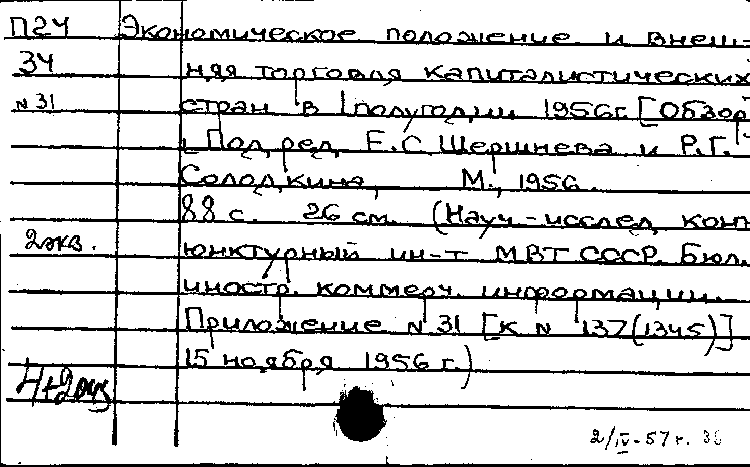 П24 Экономическое положение и внеш-
34 няя торговля капиталистических
N31 стран в I полугодии 1956г. [Обзор]
Под ред. Е.С. Шершнева и Р.Г.
Солодкина, М., 1956.
88 с. 26 см. (Науч-исслед. конъ
2 экз. юнктурный ин-т МВТ СССР. Бюл.
иностр. коммерч. информации.
Приложение N 31 [к N 137(1345)]
15 ноября 1956 г.)
2/IV-57 г.